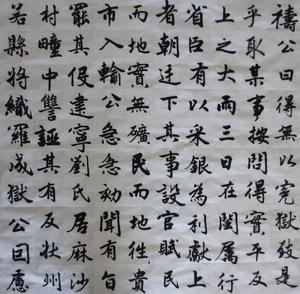 禱公曰得以寃致是
乎取某事按問得實平反
上之大雨三日在閩屬行
省臣有以采銀為利獻上
者朝廷下其事設官賦民
而地實無礦民而地徃貴
市入輸公急急劾聞有旨
罷其役建寧劉氏居麻沙
村疃中讐誣其有反狀州
若縣將織羅成獄公囙慮